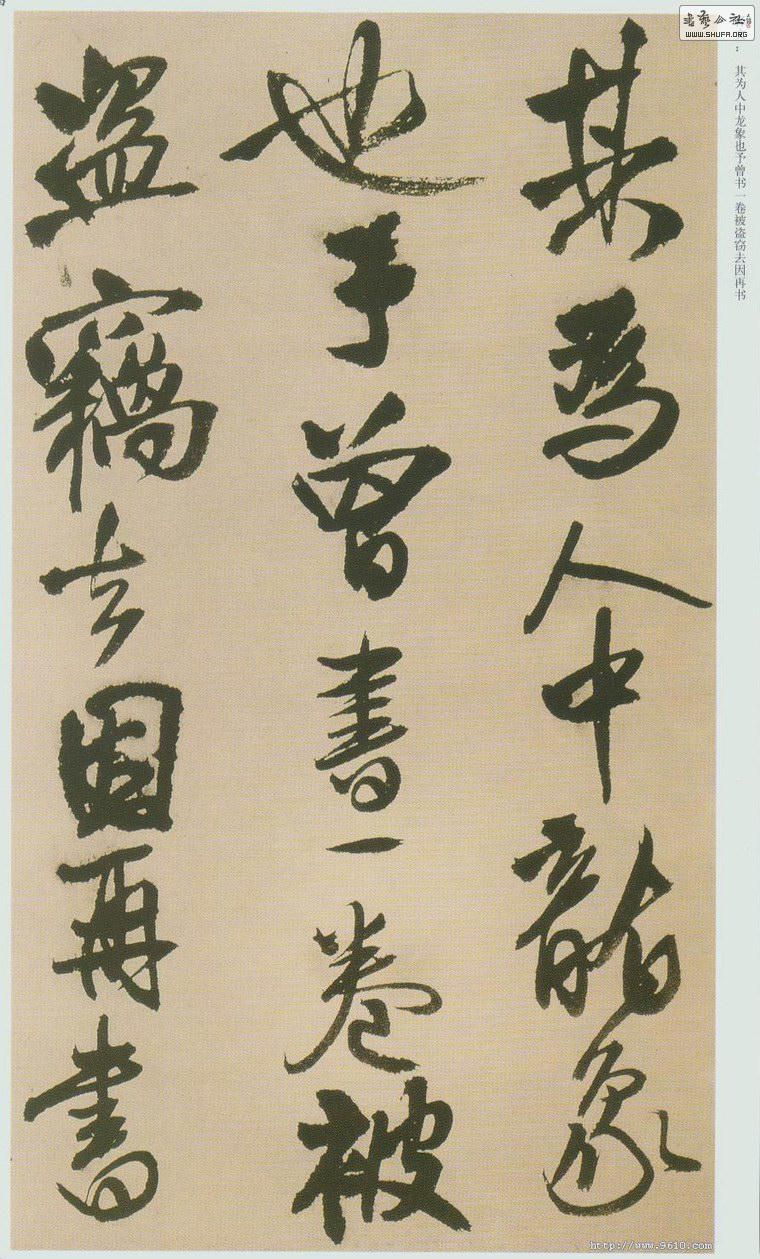 其為人中龍象
也予曾書一卷被
盜竊去因再書
：其为人中龙象也予曾书一卷被盗窃去因再书
書藝公社
WWW.SHUFA.ORG
http://www.9610.com